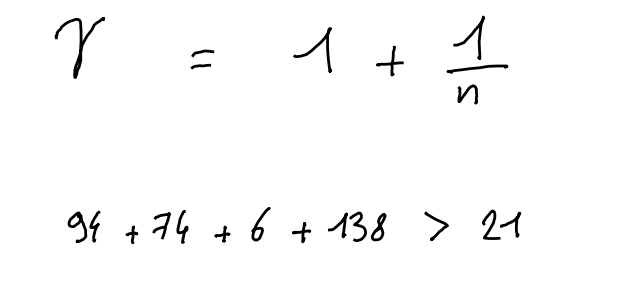 γ = 1 + 1/n
94 + 74 + 6 + 138 > 21